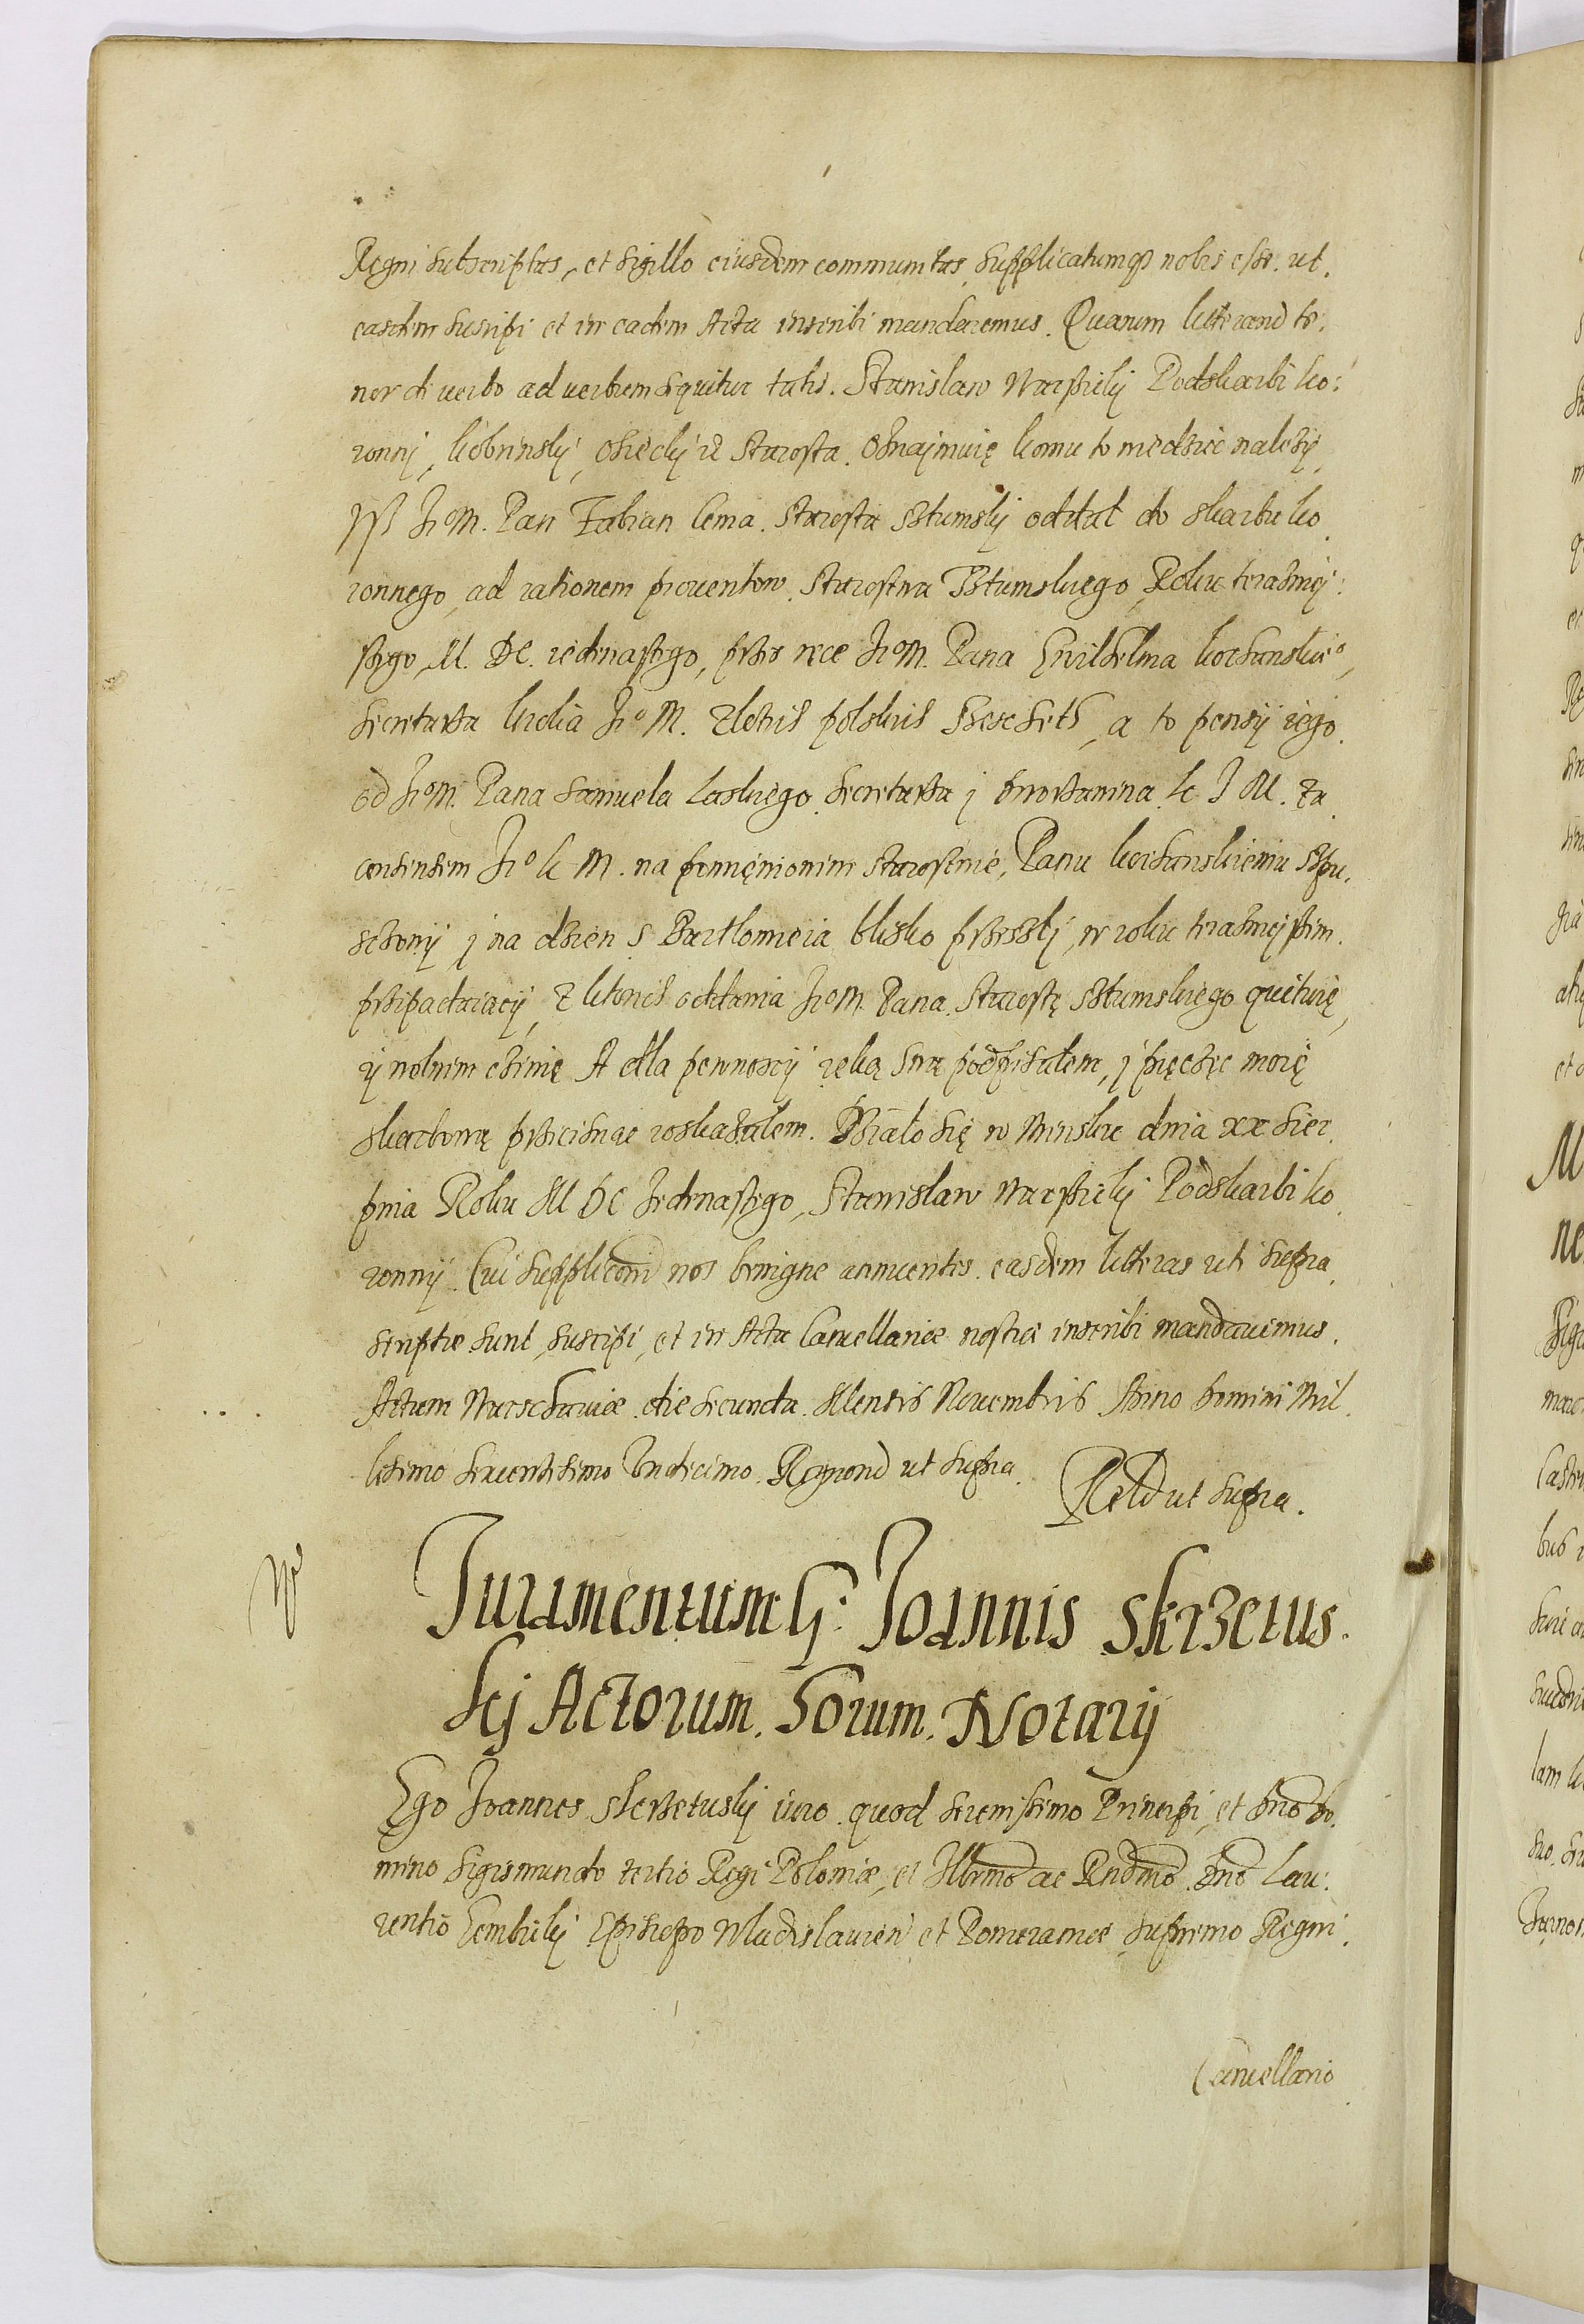 Regni subscriptas, et sigillo eiusdem communitas, supplicatumq3 nobis esse. ut.
easdem suscipi et in eadem Acta inscribi mandaremus. Quarum litterarud te:
nor de verbo ad verbum sequitur talis. Stanislaw Warszicky Podskarbi ko:
ronny, kobrinsky, Osiecky &c Starosta. Oznajmuię komu to wiedziec nalezy,
Isz Jeo M. Pan Fabian Cema. Starosta Sztumsky oddał do skarbu ko.
ronnego, ad rationem prouentow. Starostwa Sztumskiego, Roku terazniej:
szego, M. DC. iedenastego, przes rece Jeo M. Pana Gwilhelma kochanskieo,
Secretarza krolia Jeo M. zlotich polskich Szescset, a to pensij iego.
od Jeo M. Pana Samuela Laskiego. Secretarza j Dworzanina. K J M. za
consensem Jeo K M. na pomięnionim Starostwie, Panu kochanskiemu Spu.
sczony j na dzien S Bartlomieia blisko przeszly, w roku teraznieyszim.
przipadaiacy, z ktorich oddania Jeo M. Pana. Starostę Sztumskiego quituię,
ij wolnim czinię A dla pewnoscij ręką swa podpisałem, j pięczęc moię
skarbową przicisnac roskazałem. Działo się w Minsku dnia xx Sier.
pnia Roku M DC Jedenastego, Stanislaw Warszicky Podskarbi ko.
ronny. Cui suppliconi nos benigne annuentes. easdem litteras uti supra.
scriptæ sunt, suscipi, et in Acta Cancellariæ nostræ inscribi mandavimus.
Actum Warschaviæ. die secunda. Mensis Novembris Anno Domini Mil.
lesimo sexcentesimo Undecimo. Regnord ut supra.
Reld ut supra.
W
Juramentum G: Joannis Skrzetus.
kj Actorum. horum. Notarij
Ego Joannes Skrzetusky iuro. quod Serenissimo Principi, et Dno Do.
mino Sigismundo tertio Regi Poloniæ, et Illrmo ac Rndmo. Dno Lau:
rentio Gembicky Episcopo Wladislavien et Pomeraniæ supremo Regni.
Cancellario